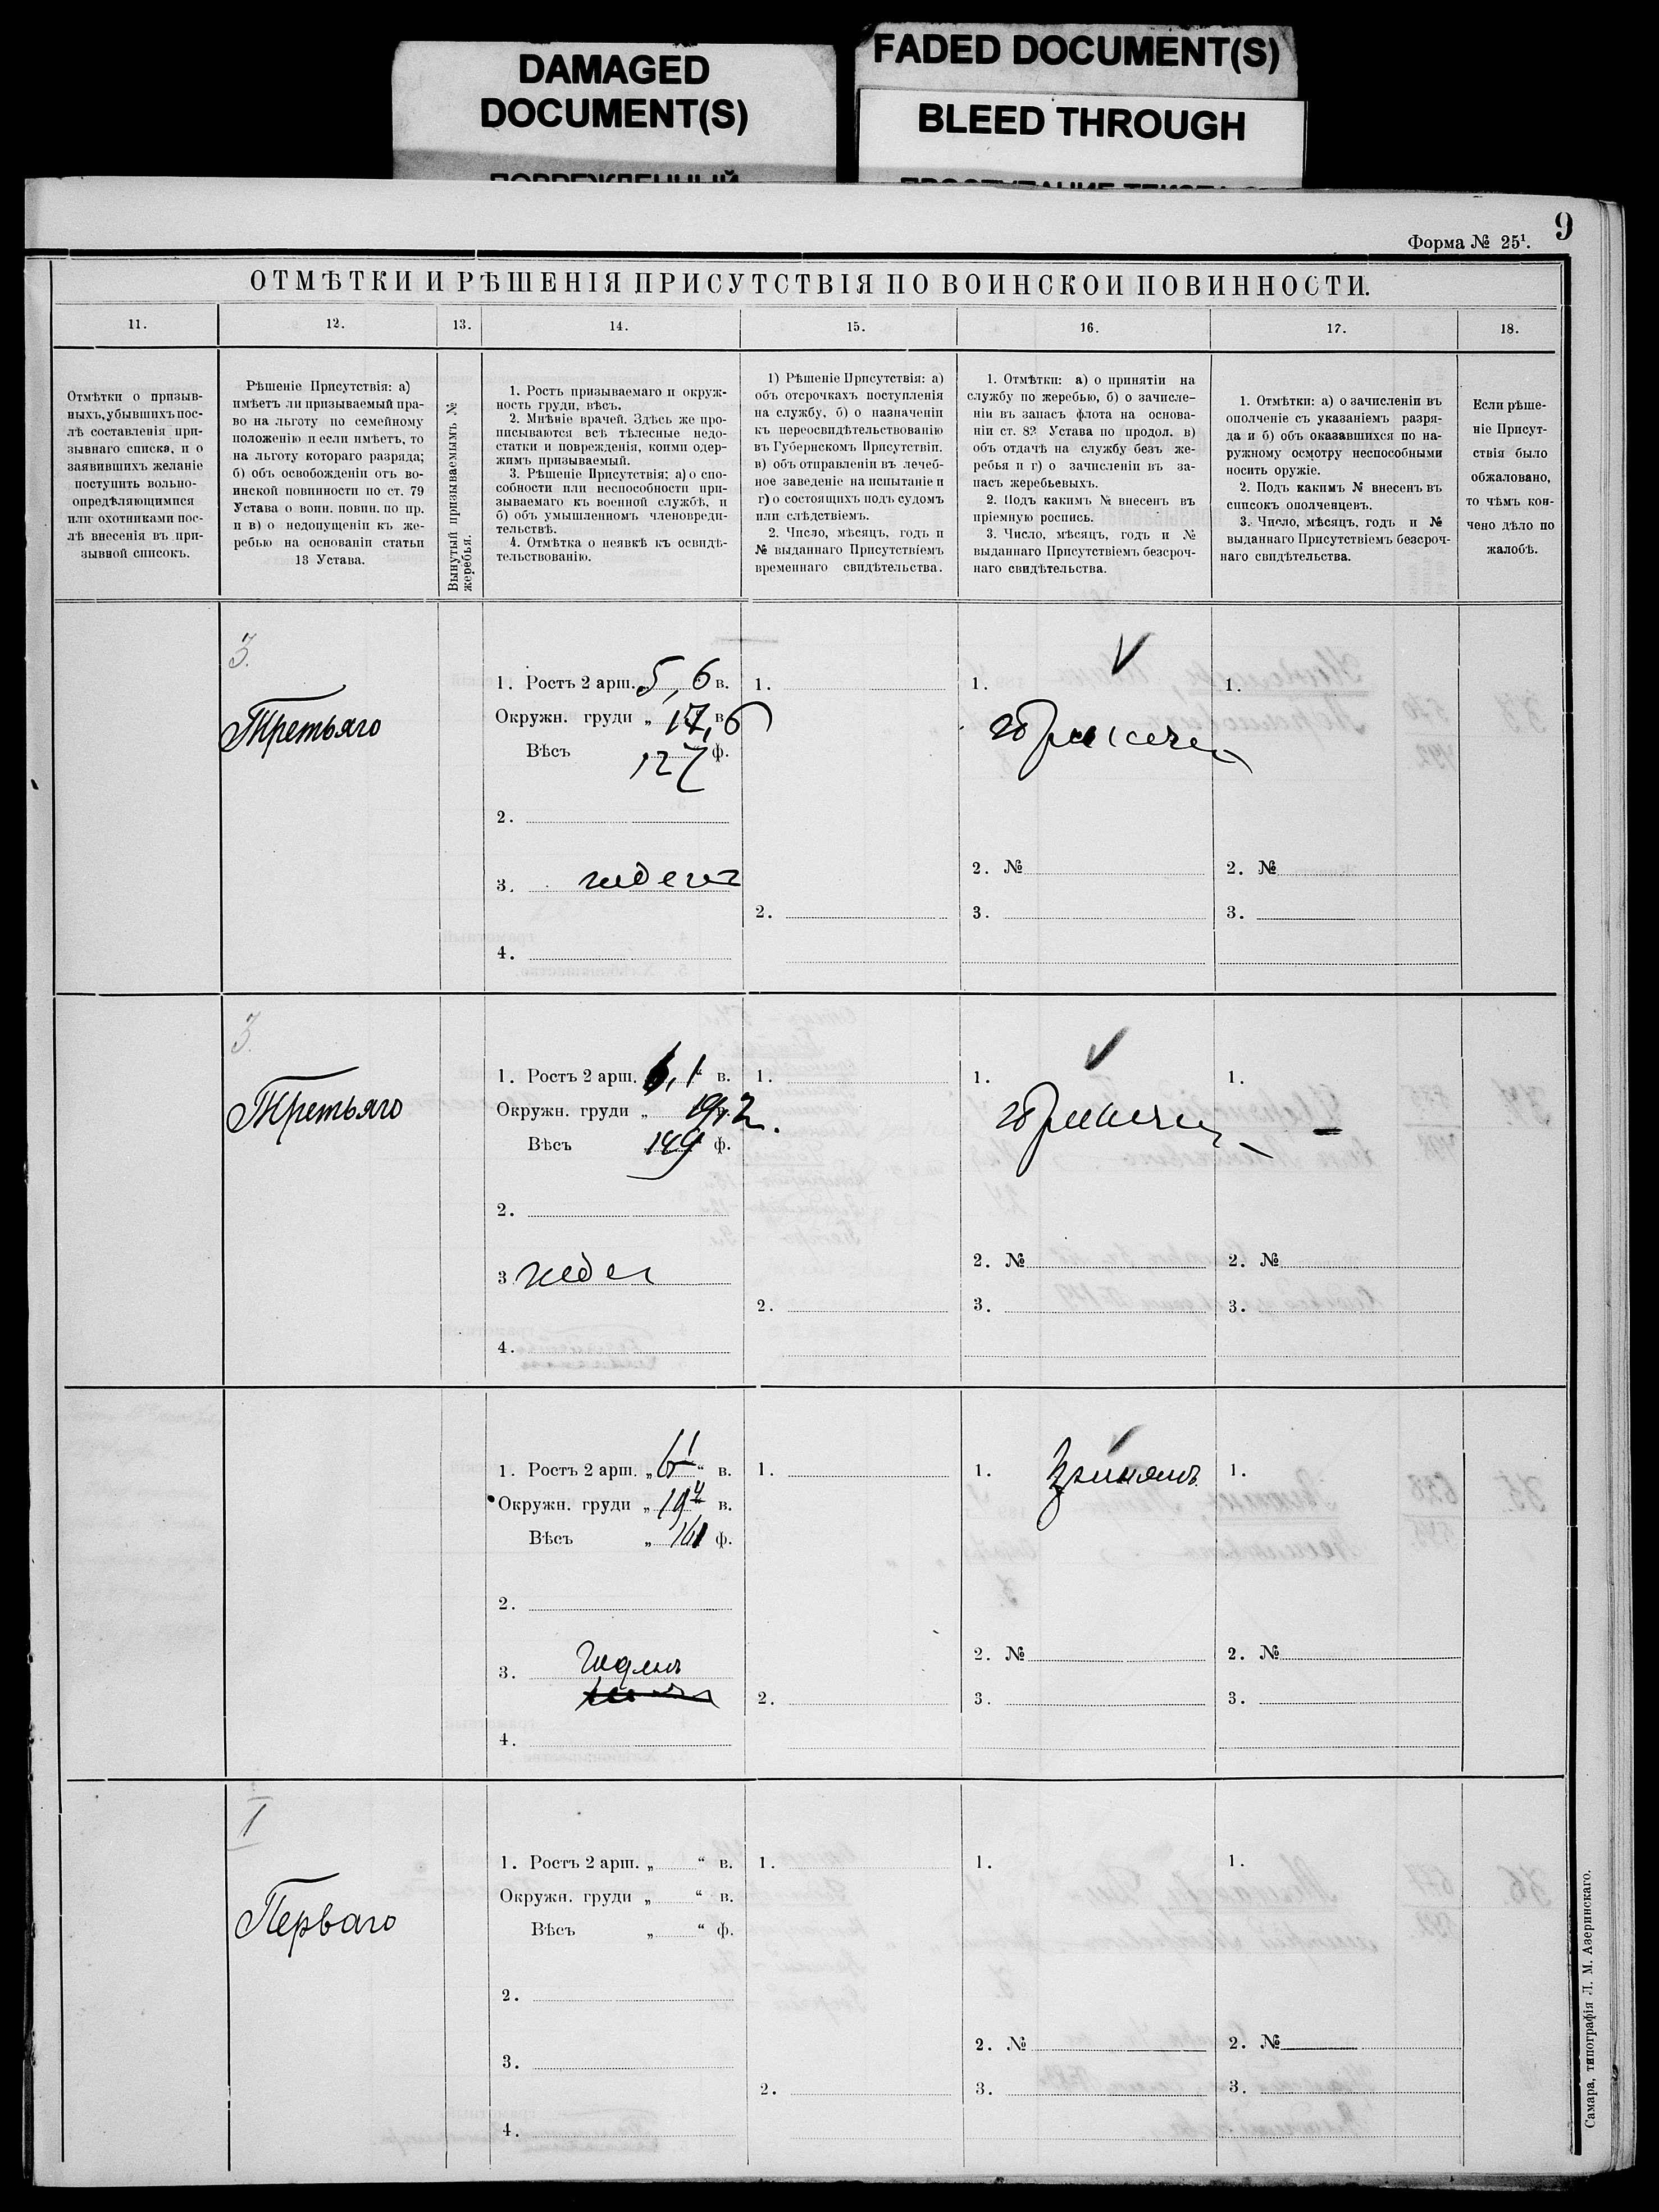 DAMAGED
DOCUMENT(S)
FADED DOCUMENT(S)
BLEED THROUGH
9
Форма № 25¹.
ОТМѢТКИ И РѢШЕНІЯ ПРИСУТСТВІЯ ПО ВОИНСКОИ ПОВИННОСТИ.
11. 12. 13. 14. 15. 16. 17. 18.
Отмѣтки о призыв-
ныхъ, убывшихъ пос-
лѣ составленія при-
зывнаго списка, и о
заявившихъ желаніе
поступить вольно-
опредѣляющимися
или охотниками пос-
лѣ внесенія въ при-
зывной списокъ.
Рѣшеніе Присутствія: а)
имѣетъ ли призываемый пра-
во на льготу по семейному
положенію и если имѣетъ, то
на льготу котораго разряда;
б) объ освобожденіи отъ во-
инской повинности по ст. 79
Устава о воин. повин. по пр.
и в) о недопущеніи къ же-
ребью на основаніи статьи
13 Устава.
Вынутый призываемымъ №
жеребья.
1. Ростъ призываемаго и окруж-
ность груди, вѣсъ.
2. Мнѣніе врачей. Здѣсь же про-
писываются всѣ тѣлесные недо-
статки и поврежденія, коими одер-
жимъ призываемый.
3. Рѣшеніе Присутствія; а) о спо-
собности или неспособности при-
зываемаго къ военной службѣ, и
б) объ умышленномъ членовреди-
тельствѣ.
4. Отмѣтка о неявкѣ къ освидѣ-
тельствованію.
1) Рѣшеніе Присутствія: а)
объ отсрочкахъ поступленія
на службу, б) о назначеніи
къ переосвидѣтельствованію
въ Губернскомъ Присутствіи.
в) объ отправленіи въ лечеб-
ное заведеніе на испытаніе и
г) о состоящихъ подъ судомъ
или слѣдствіемъ.
2. Число, мѣсяцъ, годъ и
№ выданнаго Присутствіемъ
временнаго свидѣтельства.
1. Отмѣтки: а) о принятіи на
службу по жеребью, б) о зачисле-
ніи въ запасъ флота на основа-
ніи ст. 82 Устава по продол. в)
объ отдачѣ на службу безъ же-
ребья и г) о зачисленіи въ за-
пасъ жеребьевыхъ.
2. Подъ какимъ № внесенъ въ
пріемную роспись.
3. Число, мѣсяцъ, годъ и №
выданнаго Присутствіемъ безсроч-
наго свидѣтельства.
1. Отмѣтки: а) о зачисленіи въ
ополченіе съ указаніемъ разря-
да и б) объ оказавшихся по на-
ружному осмотру неспособными
носить оружіе.
2. Подъ какимъ № внесенъ въ
списокъ ополченцевъ.
3. Число, мѣсяцъ, годъ и №
выданнаго Присутствіемъ безсроч-
наго свидѣтельства.
Если рѣше-
ніе Присут-
ствія было
обжаловано,
то чѣмъ кон-
чено дѣло по
жалобѣ.
3.
Третьяго
1. Ростъ 2 арш. „ 5,6 в.
Окружн. груди „ 17,6 в.
Вѣсъ 127 ф.
2.
3.
4.
1.
2.
1.
2. №
3.
1.
2. №
3.
3.
Третьяго
1. Ростъ 2 арш. 6,1 " в.
Окружн. груди „ 19,2 в.
Вѣсъ 149 ф.
2.
3.
4.
1.
2.
1.
2. №
3.
1.
2. №
3.
1. Ростъ 2 арш. „ 6 1 " в.
Окружн. груди „ 19 4 в.
Вѣсъ „ 161 ф.
2.
3. Годенъ
4.
1.
2.
1. Принятъ
2. №
3.
1.
2. №
3.
I
Перваго
1. Ростъ 2 арш. „ " в.
Окружн. груди „ " в.
Вѣсъ „ " ф.
2.
3.
4.
1.
2.
1.
2. №
3.
1.
2. №
3.
Самара, типографія Л. М. Азеринскаго.